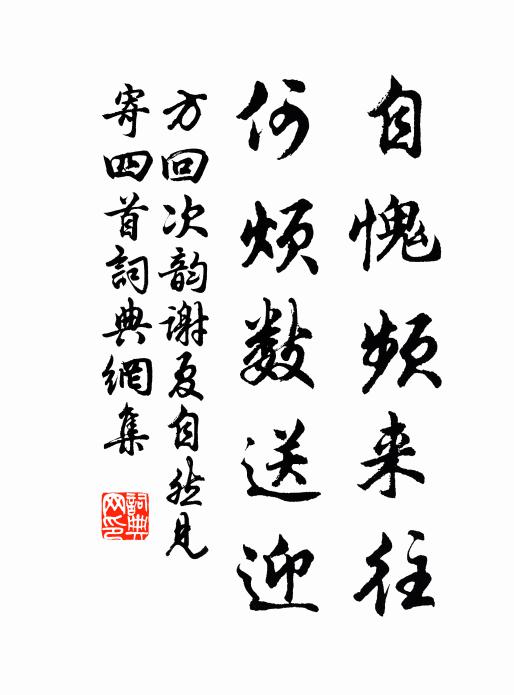 自愧频来往
何烦数送迎
方回次韵谢夏自然见
寄四首詞典網集
詞典
网印